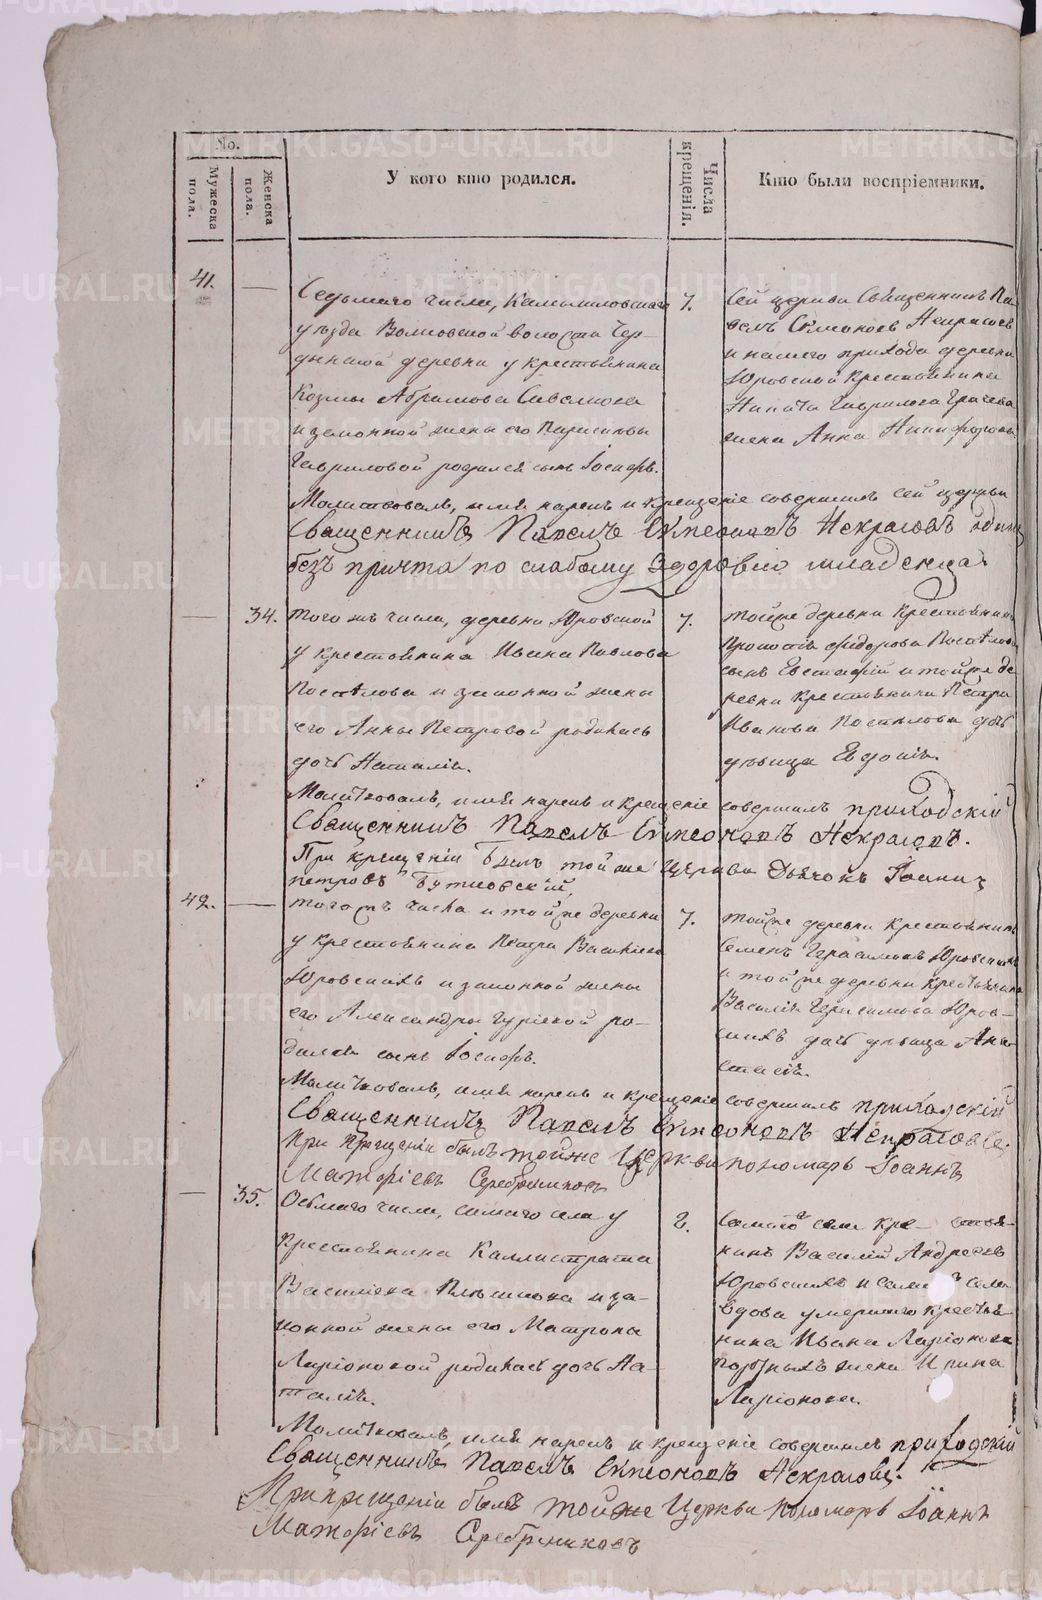 No.
Мужеска пола.
Женска пола.
У кого кто родился.
Числа крещенія.
Кто были воспріемники.
41.
Седьмаго числа, Камышловскаго
уѣзда Волковской волости Чер-
дынской деревни у крестьянина
Козмы Абрамова Савалкова
и законной жены его Параскевы
Гавриловой родился сынъ Іосифъ.
7.
Сей церкви Священникъ Па-
велъ Симеоновъ Некрасовъ
и нашего прихода деревни
Юровской крестьянина
Никиты Гаврилова Грачева
жена Анна Никифорова
Молитвовалъ, имя нарекъ и крещеніе совершилъ сей церкви
Священникъ Павелъ Симеоновъ Некрасовъ одинъ
безъ причта по слабому здоровью младенца.
34.
того жъ числа, деревни Юровской
у крестьянина Ивана Павлова
Поспѣлова и законной жены
его Анны Петровой родилась
дочь Наталія.
7.
тойже деревни крестьянина
Федорова Поспѣлова
сынъ Евстафій и тойже де
ревни крестьянина Петра
Иванова Поспѣлова дочь
дѣвица Евдокія.
Молитвовалъ, имя нарекъ и крещеніе совершилъ приходскій
Священникъ Павелъ Симеоновъ Некрасовъ.
При крещеніи былъ той же Церкви Дьячокъ Іоаннъ
Петровъ Бутковскій.
42.
того жъ числа и тойже деревни
у крестьянина Петра Васильева
Юровскихъ и законной жены
его Александры Гурьевой ро-
дился сынъ Іосифъ.
7.
тойже деревни крестьянинъ
Семенъ Герасимовъ Юровскихъ
и тойже деревни крестьянина
Василія Герасимова Юров-
скихъ дочь дѣвица Ана-
стасія.
Молитвовалъ, имя нарекъ и крещеніе совершилъ приходскій
Священникъ Павелъ Симеоновъ Некрасовъ.
При крещеніи былъ тойже Церкви пономарь Іоаннъ
Матфіевъ Серебренниковъ
35.
Осьмаго числа, самаго села у
крестьянина Каллистрата
Василева Плюшкова и за-
конной жены его Матроны
Ларіоновой родилась дочь На-
талія.
8.
Самаго села кре- стья-
нинъ Василій Андреевъ
Юровскихъ и села
вдова умершаго крестья-
нина Ивана Ларіонова
жена Ирина
Ларіонова.
Молитвовалъ, имя нарекъ и крещеніе совершилъ приходскій
Священникъ Павелъ Симеоновъ Некрасовъ.
При крещеніи былъ тойже Церкви пономарь Іоаннъ
Матфіевъ Серебренниковъ